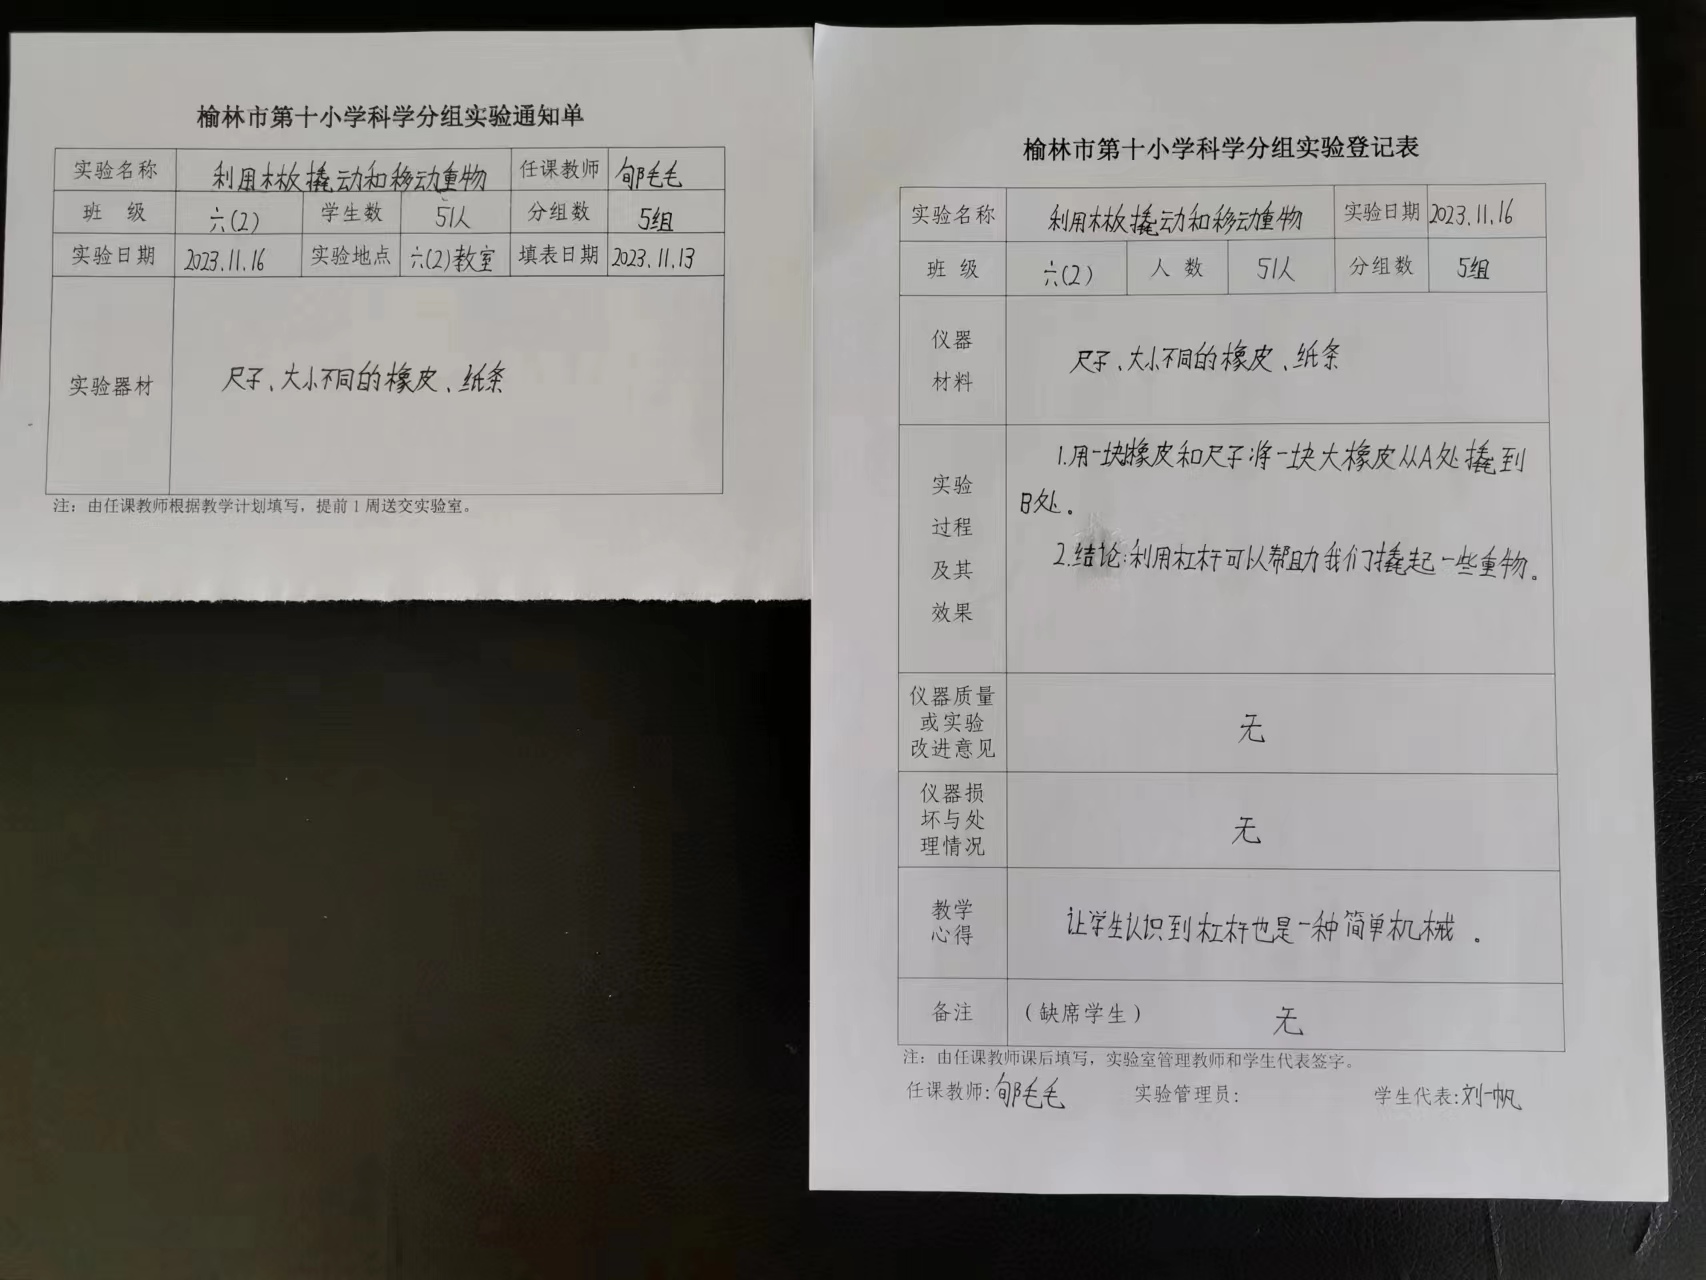 榆林市第十小学科学分组实验通知单
实验名称 利用木板撬动和移动重物 任课教师 郇毛毛
班 级 六(2) 学生数 51人 分组数 5组
实验日期 2023.11.16 实验地点 六(2)教室 填表日期 2023.11.13
实验器材 尺子、大小不同的橡皮、纸条
注：由任课教师根据教学计划填写，提前1周送交实验室。
榆林市第十小学科学分组实验登记表
实验名称 利用木板撬动和移动重物 实验日期 2023.11.16
班 级 六(2) 人 数 51人 分组数 5组
仪器
材料
尺子、大小不同的橡皮、纸条
实验
过程
及其
效果
1.用一块橡皮和尺子将一块大橡皮从A处撬到
B处。
2.结论:利用杠杆可以帮助我们撬起一些重物。
仪器质量
或实验
改进意见
无
仪器损
坏与处
理情况
无
教学
心得
让学生认识到杠杆也是一种简单机械。
备注 （缺席学生） 无
注：由任课教师课后填写，实验室管理教师和学生代表签字。
任课教师:郇毛毛 实验管理员: 学生代表:刘一帆